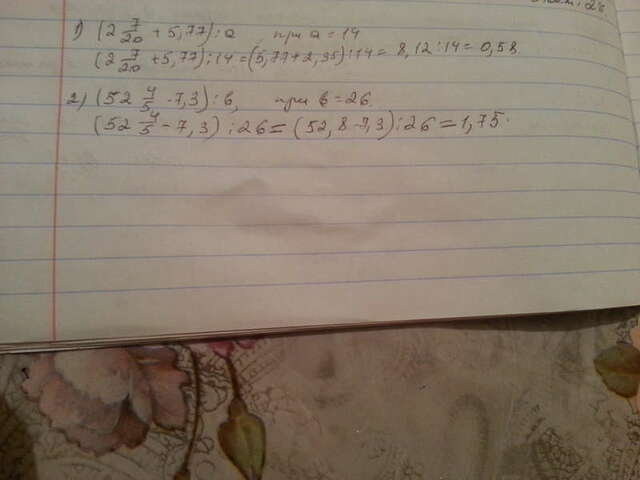 1) (2 7/20 + 5,77) : a при a = 14
(2 7/20 + 5,77) : 14 = (5,77 + 2,35) : 14 = 8,12 : 14 = 0,58
2) (52 4/5 - 7,3) : в, при в = 26
(52 4/5 - 7,3) : 26 = (52,8 - 7,3) : 26 = 1,75.